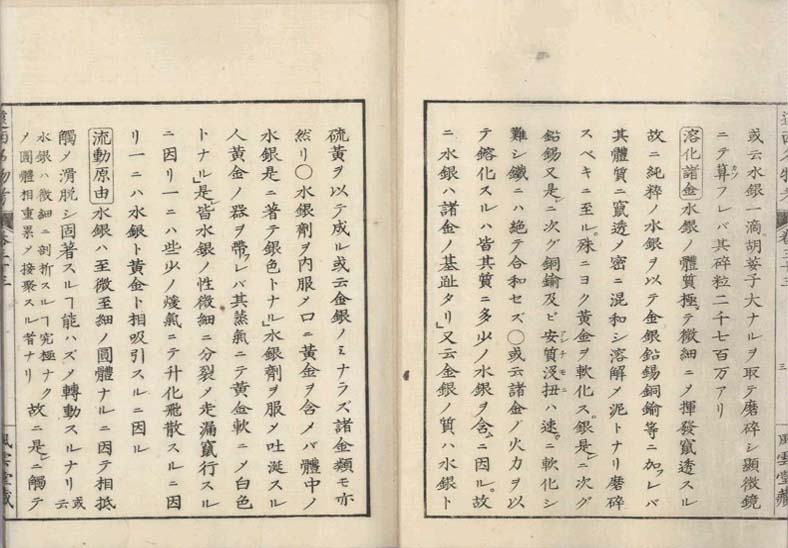 或云水銀一滴胡荽子大ナルヲ取テ磨碎シ顯微鏡
ニテ算フレバ其碎粒二千七百万アリ
溶化諸金 水銀ノ體質極テ微細ニメ揮發竄透スル
故ニ純粹ノ水銀ヲ以テ金銀鉛錫銅鍮等ニ加フレバ
其體質ニ竄透メ密ニ混和シ溶解メ泥トナリ磨碎
スベキニ至ル。殊ニヨク黄金ヲ軟化ス。銀是ニ次グ
鉛錫又是ニ次グ銅鍮及ビ安質没扭ハ速ニ軟化シ
難シ鐵ニハ絶テ合和セズ○或云諸金ノ火力ヲ以
テ鎔化スルハ皆其質ニ多少ノ水銀ヲ含ムニ因ル。故
ニ水銀ハ諸金ノ基趾タリ」又云金銀ノ質ハ水銀ト
三
風雲堂藏
硫黄ヲ以テ成ル或云金銀ノミナラズ諸金類モ亦
然リ○水銀劑ヲ内服メ口ニ黄金ヲ含メバ體中ノ
水銀是ニ著テ銀色トナル」水銀劑ヲ服メ吐涎スル
人黄金ノ器ヲ帶フレバ其蒸氣ニテ黄金軟ニメ白色
トナル」是皆水銀ノ性微細ニ分裂メ走漏竄行スル
ニ因リ一ニハ些少ノ煖氣ニテ升化飛散スルニ因
リ一ニハ水銀ト黄金ト相吸引スルニ因ル
流動原由 水銀ハ至微至細ノ圓體ナルニ因テ相抵
觸メ滑脱シ固著スルヿ能ハズメ轉動スルナリ或云
水銀ハ微細ニ剖析スルヿ究極ナク
ノ圓體相重累メ接聚スル者ナリ
故ニ是ニ觸テ
風雲堂藏